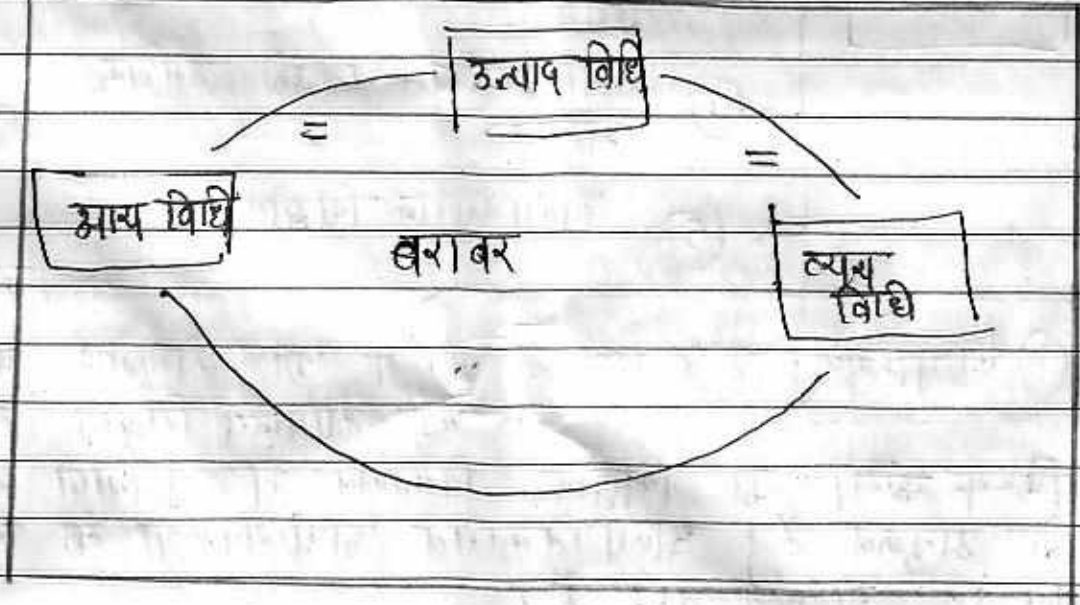 उत्पाद विधि
=
=
आय विधि
बराबर
व्यय
विधि